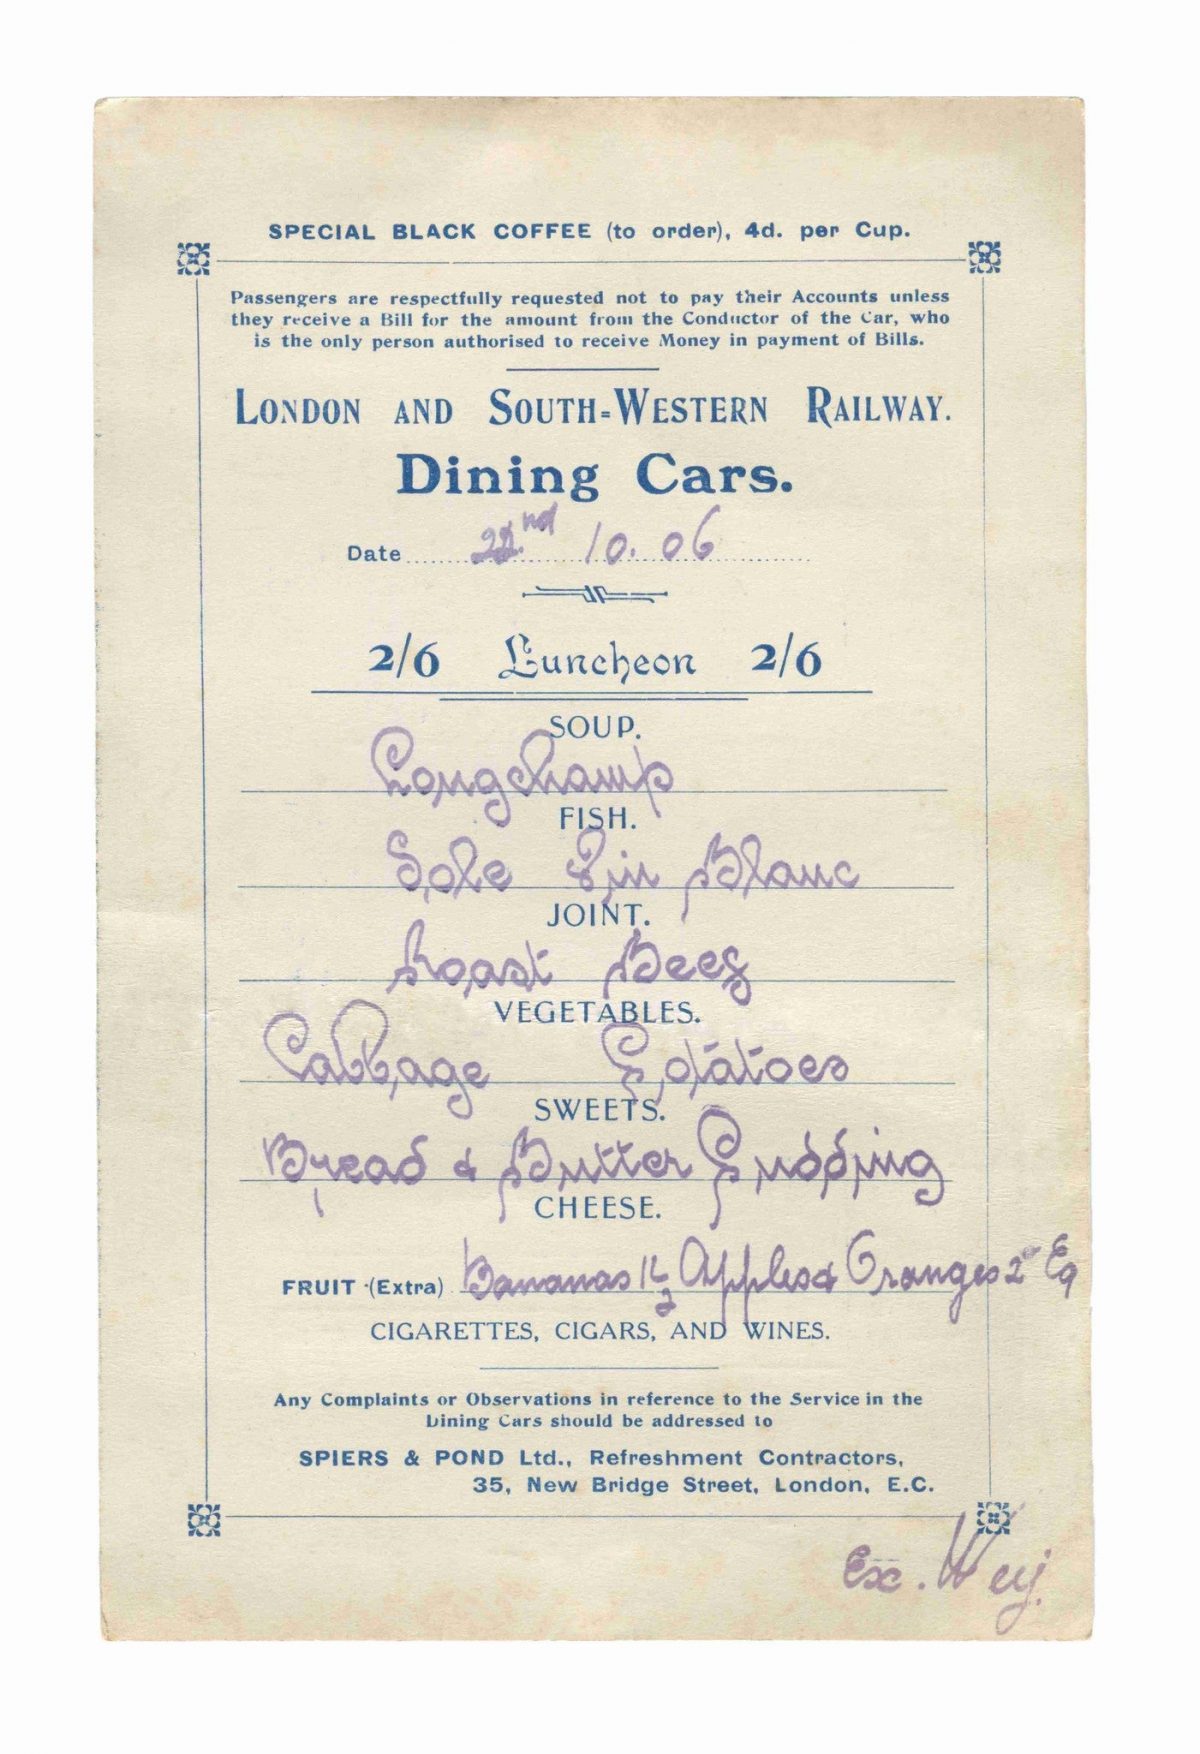 SPECIAL BLACK COFFEE (to order), 4d. per Cup.
Passengers are respectfully requested not to pay their Accounts unless
they receive a Bill for the amount from the Conductor of the Car, who
is the only person authorised to receive Money in payment of Bills.
LONDON AND SOUTH=WESTERN RAILWAY.
Dining Cars.
Date 22nd 10.06
2/6 Luncheon 2/6
SOUP.
Longchamp
FISH.
Sole Vin Blanc
JOINT.
Roast Beef
VEGETABLES.
Cabbage Potatoes
SWEETS.
Bread & Butter Pudding
CHEESE.
FRUIT (Extra) Bananas 1½ Apples & Oranges 2d Eq
CIGARETTES, CIGARS, AND WINES.
Any Complaints or Observations in reference to the Service in the
Dining Cars should be addressed to
SPIERS & POND Ltd., Refreshment Contractors,
35, New Bridge Street, London, E.C.
Ex.